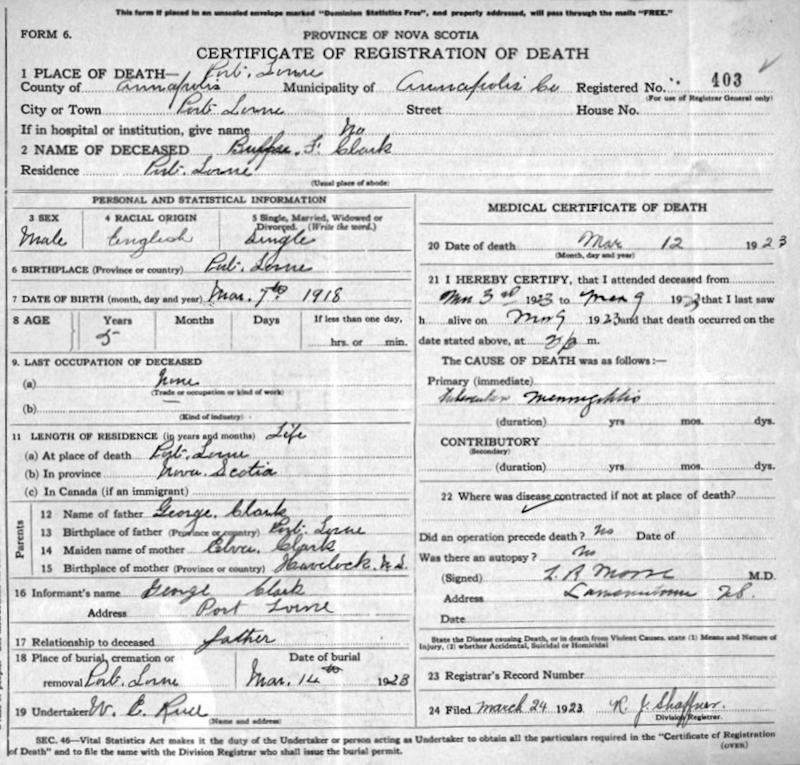 This form if placed in an unsealed envelope marked "Dominion Statistics Free", and properly addressed, will pass through the mails "FREE."
FORM 6. PROVINCE OF NOVA SCOTIA
CERTIFICATE OF REGISTRATION OF DEATH
1 PLACE OF DEATH— Port Lorne
County of Annapolis Municipality of Annapolis Co Registered No. 403
(For use of Registrar General only)
City or Town Port Lorne Street House No.
If in hospital or institution, give name No
2 NAME OF DECEASED F. Clark
Residence Port Lorne
(Usual place of abode)
PERSONAL AND STATISTICAL INFORMATION
3 SEX 4 RACIAL ORIGIN 5 Single, Married, Widowed or Divorced. (Write the word.)
Male English Single
6 BIRTHPLACE (Province or country) Port Lorne
7 DATE OF BIRTH (month, day and year) Mar. 7th 1918
8 AGE Years Months Days If less than one day,
5 hrs. or min.
9. LAST OCCUPATION OF DECEASED
(a) None
(Trade or occupation or kind of work)
(b)
(Kind of industry)
11 LENGTH OF RESIDENCE (in years and months) Life
(a) At place of death Port Lorne
(b) In province Nova Scotia
(c) In Canada (if an immigrant)
Parents
12 Name of father George Clark
13 Birthplace of father (Province or country) Port Lorne
14 Maiden name of mother Clark
15 Birthplace of mother (Province or country) Havelock N.S.
16 Informant's name George Clark
Address Port Lorne
17 Relationship to deceased father
18 Place of burial, cremation or removal Port Lorne Date of burial Mar. 14th 1923
19 Undertaker W. E.
(Name and address)
MEDICAL CERTIFICATE OF DEATH
20 Date of death Mar 12 1923
(Month, day and year)
21 I HEREBY CERTIFY, that I attended deceased from
Mar 3rd 1923 to Mar 9 1923 that I last saw
h alive on Mar 9 1923 and that death occurred on the
date stated above, at m.
The CAUSE OF DEATH was as follows:—
Primary (immediate)
Tubercular Meningitis
(duration) yrs. mos. dys.
CONTRIBUTORY
(Secondary)
(duration) yrs. mos. dys.
22 Where was disease contracted if not at place of death?
Did an operation precede death? No Date of
Was there an autopsy? No
(Signed) L. R. Morse M.D.
Address Lawrencetown N.S.
Date
State the Disease causing Death, or in death from Violent Causes, state (1) Means and Nature of
Injury, (2) whether Accidental, Suicidal or Homicidal
23 Registrar's Record Number
24 Filed March 24 1923 R. J. Shaffner.
Division Registrar.
SEC. 46—Vital Statistics Act makes it the duty of the Undertaker or person acting as Undertaker to obtain all the particulars required in the "Certificate of Registration
of Death" and to file the same with the Division Registrar who shall issue the burial permit. (OVER)